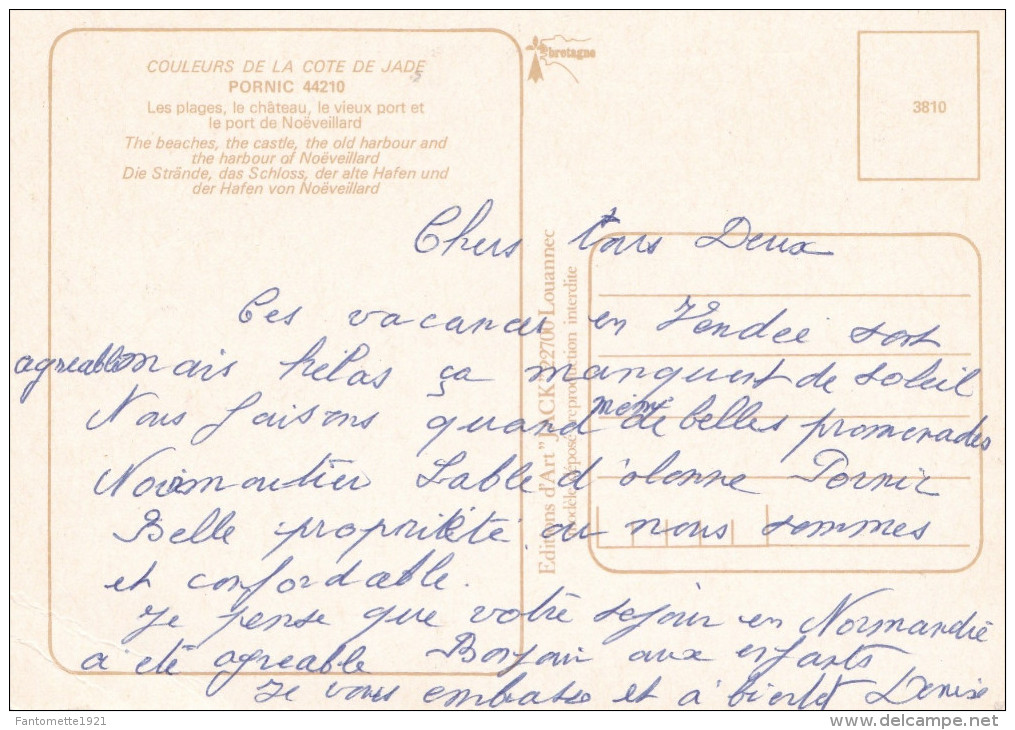 COULEURS DE LA COTE DE JADE
PORNIC 44210
Les plages, le château, le vieux port et
le port de Noëveillard
The beaches, the castle, the old harbour and
the harbour of Noëveillard
Die Strände, das Schloss, der alte Hafen und
der Hafen von Noëveillard
bretagne
3810
Editions d'Art "JACK" 22700 Louannec
modèle déposé reproduction interdite
Chers tous Deux
Ces vacances en Vendée sont
agreable mais hélas ça manquent de soleil
Nous faisons quand même de belles promenades
Noirmoutier Sable d'olonne Pornic
Belle propriété ou nous sommes
et confordable.
Je pense que votre sejour en Normandie
a été agreable Bonjour aux enfants
Je vous embrasse et a bientot Denise
Fantomette1921
delcampe.net